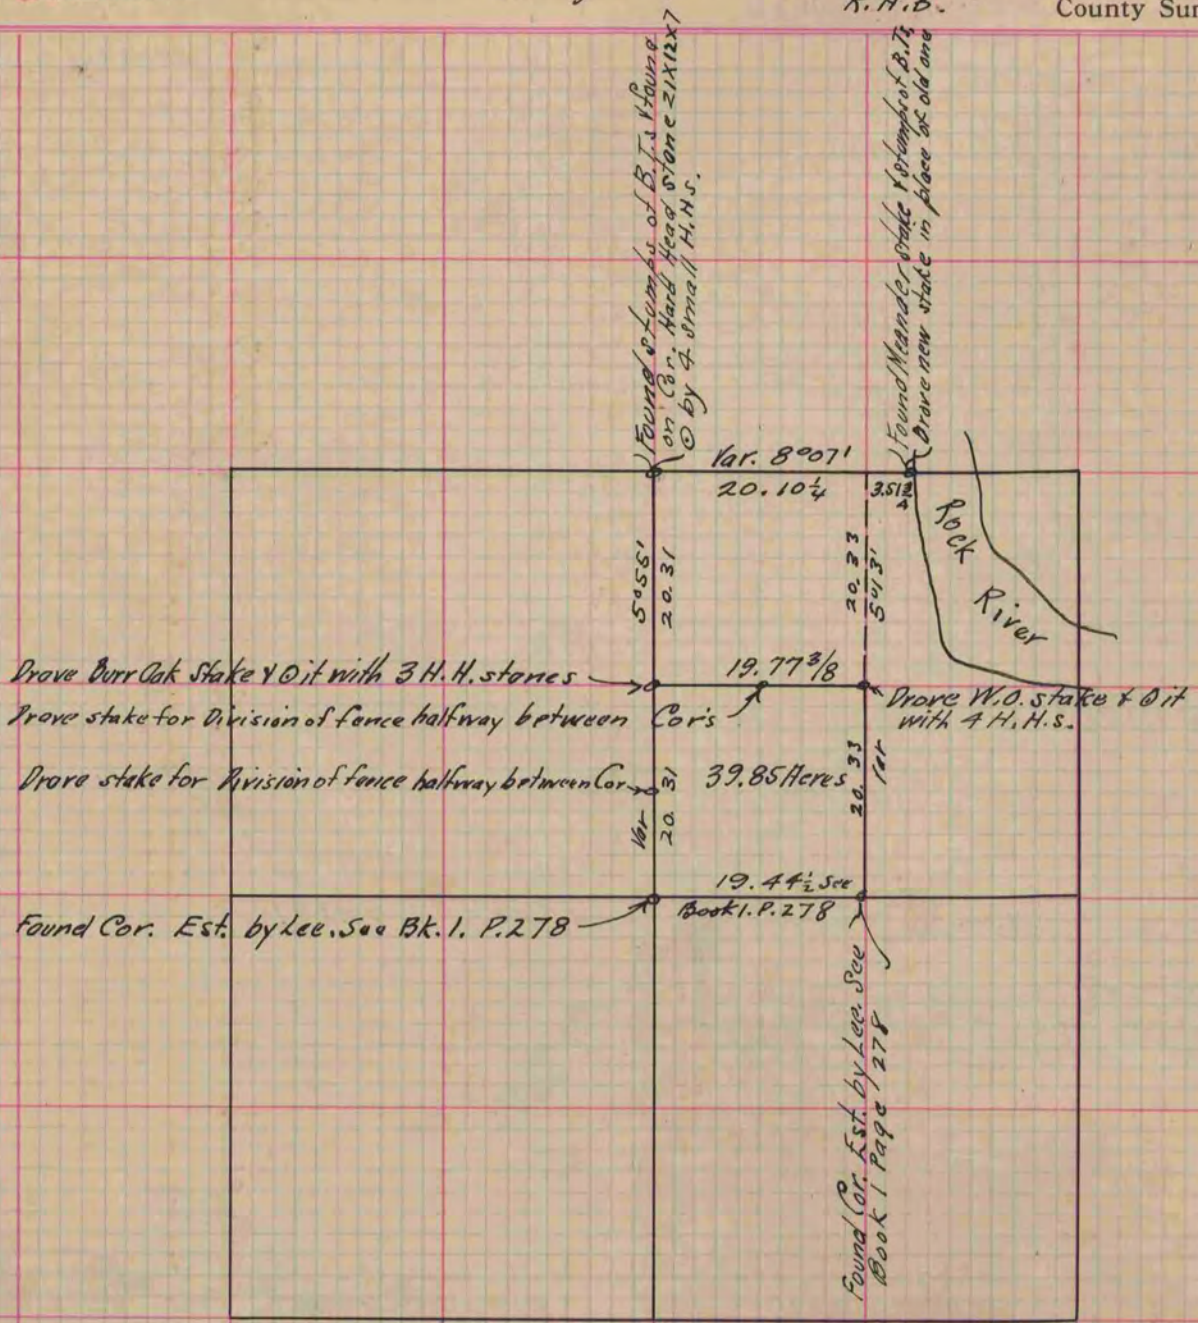 R.H.B.
County Sur
Found stumps of B.T.s & found
on Cor. Hard Head stone 21X12X7
⊙ by 4 small H.H's.
Found Meander stake & stumps of B.Ts,
Drove new stake in place of old one
Var. 8°07'
20.10¼
3.51¾
Rock
River
5°55'
20.31
20.33
5°13'
Drove Burr Oak Stake & ⊙ it with 3 H.H. stones
19.77 3/8
Drove W.O. stake & ⊙ it
with 4 H.H.s.
Drove stake for Division of fence halfway between Cor's
Drove stake for Division of fence halfway between Cor
39.85 Acres
Var
20.31
20.33
Var
19.44½ See
Book 1. P. 278
Found Cor. Est. by Lee. See Bk. 1. P. 278
Found Cor. Est. by Lee. See
Book 1 Page 278